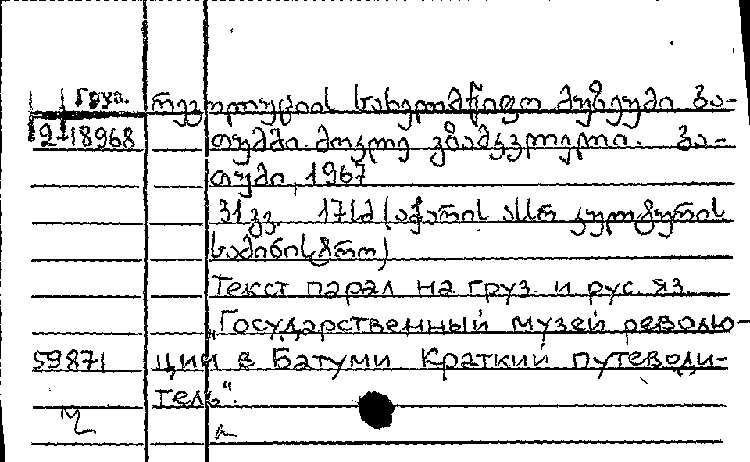 Груз. რევოლუციის სახელმწიფო მუზეუმი ბა-
2-18968 თუმში. მოკლე გზამკვლევი. ბა-
თუმი, 1967
31 გვ. 17სმ (აჭარის ასსრ კულტურის
სამინისტრო)
Текст парал на груз. и рус. яз.
„Государственный музей револю-
59871 ции в Батуми Краткий путеводи-
тель".